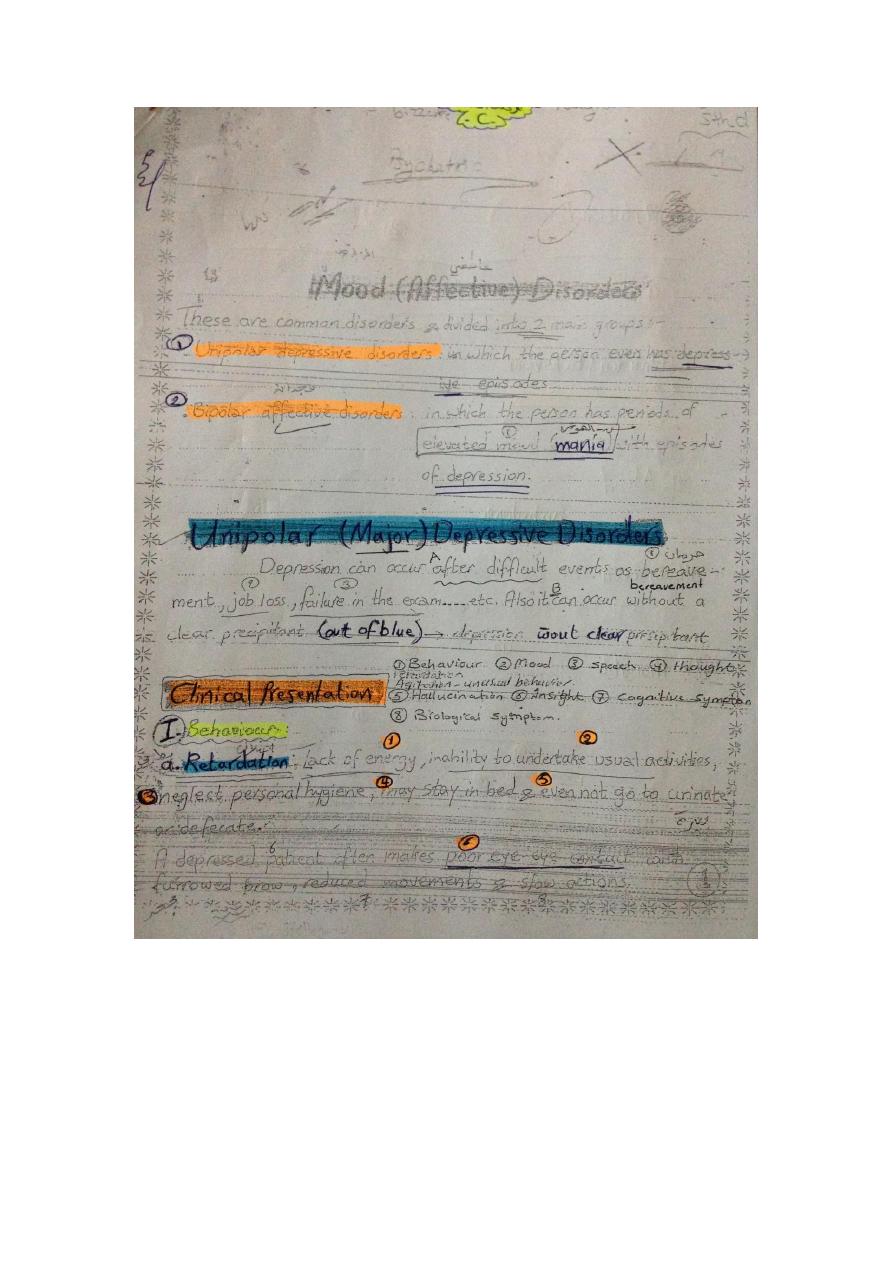 C.
5th d
Psychatric
عاطفي
Mood (Affective) Disorders
These are common disorders & divided into 2 main groups:-
① Unipolar depressive disorders: in which the person even has depress-
ive episodes
② Bipolar affective disorders: in which the person has periods of
elevated mood (mania) with episodes
of depression.
Unipolar (Major) Depressive Disorders
① حرمان
Depression can occur A after difficult events as bereave-
bereavement
ment, ② job loss, ③ failure in the exam.... etc. Also it B can occur without a
clear precipitant (out of blue) → depression wout clear precipitant
① Behaviour ② Mood ③ speech ④ thought
retardation
Agitation - unusual behavior
Clinical Presentation ⑤ Hallucination ⑥ insight ⑦ Cognitive symptom
⑧ Biological symptom.
I. Behaviour:
① ②
a. Retardation: Lack of energy, inability to undertake usual activities,
③ neglect personal hygiene, ④ may stay in bed & ⑤ even not go to urinate
or defecate.
⑥
A depressed patient often makes poor eye eye contact with
furrowed brow, reduced movements & slow actions.
1
7 8